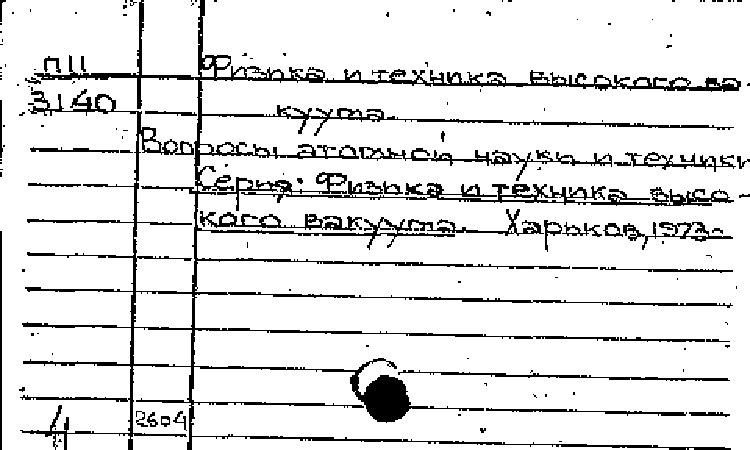 П11
3140
Физика и техника высокого ва-
куума.
Вопросы атомной науки и техники
Серия: Физика и техника высо-
кого вакуума. Харьков, 1973-
4
2604